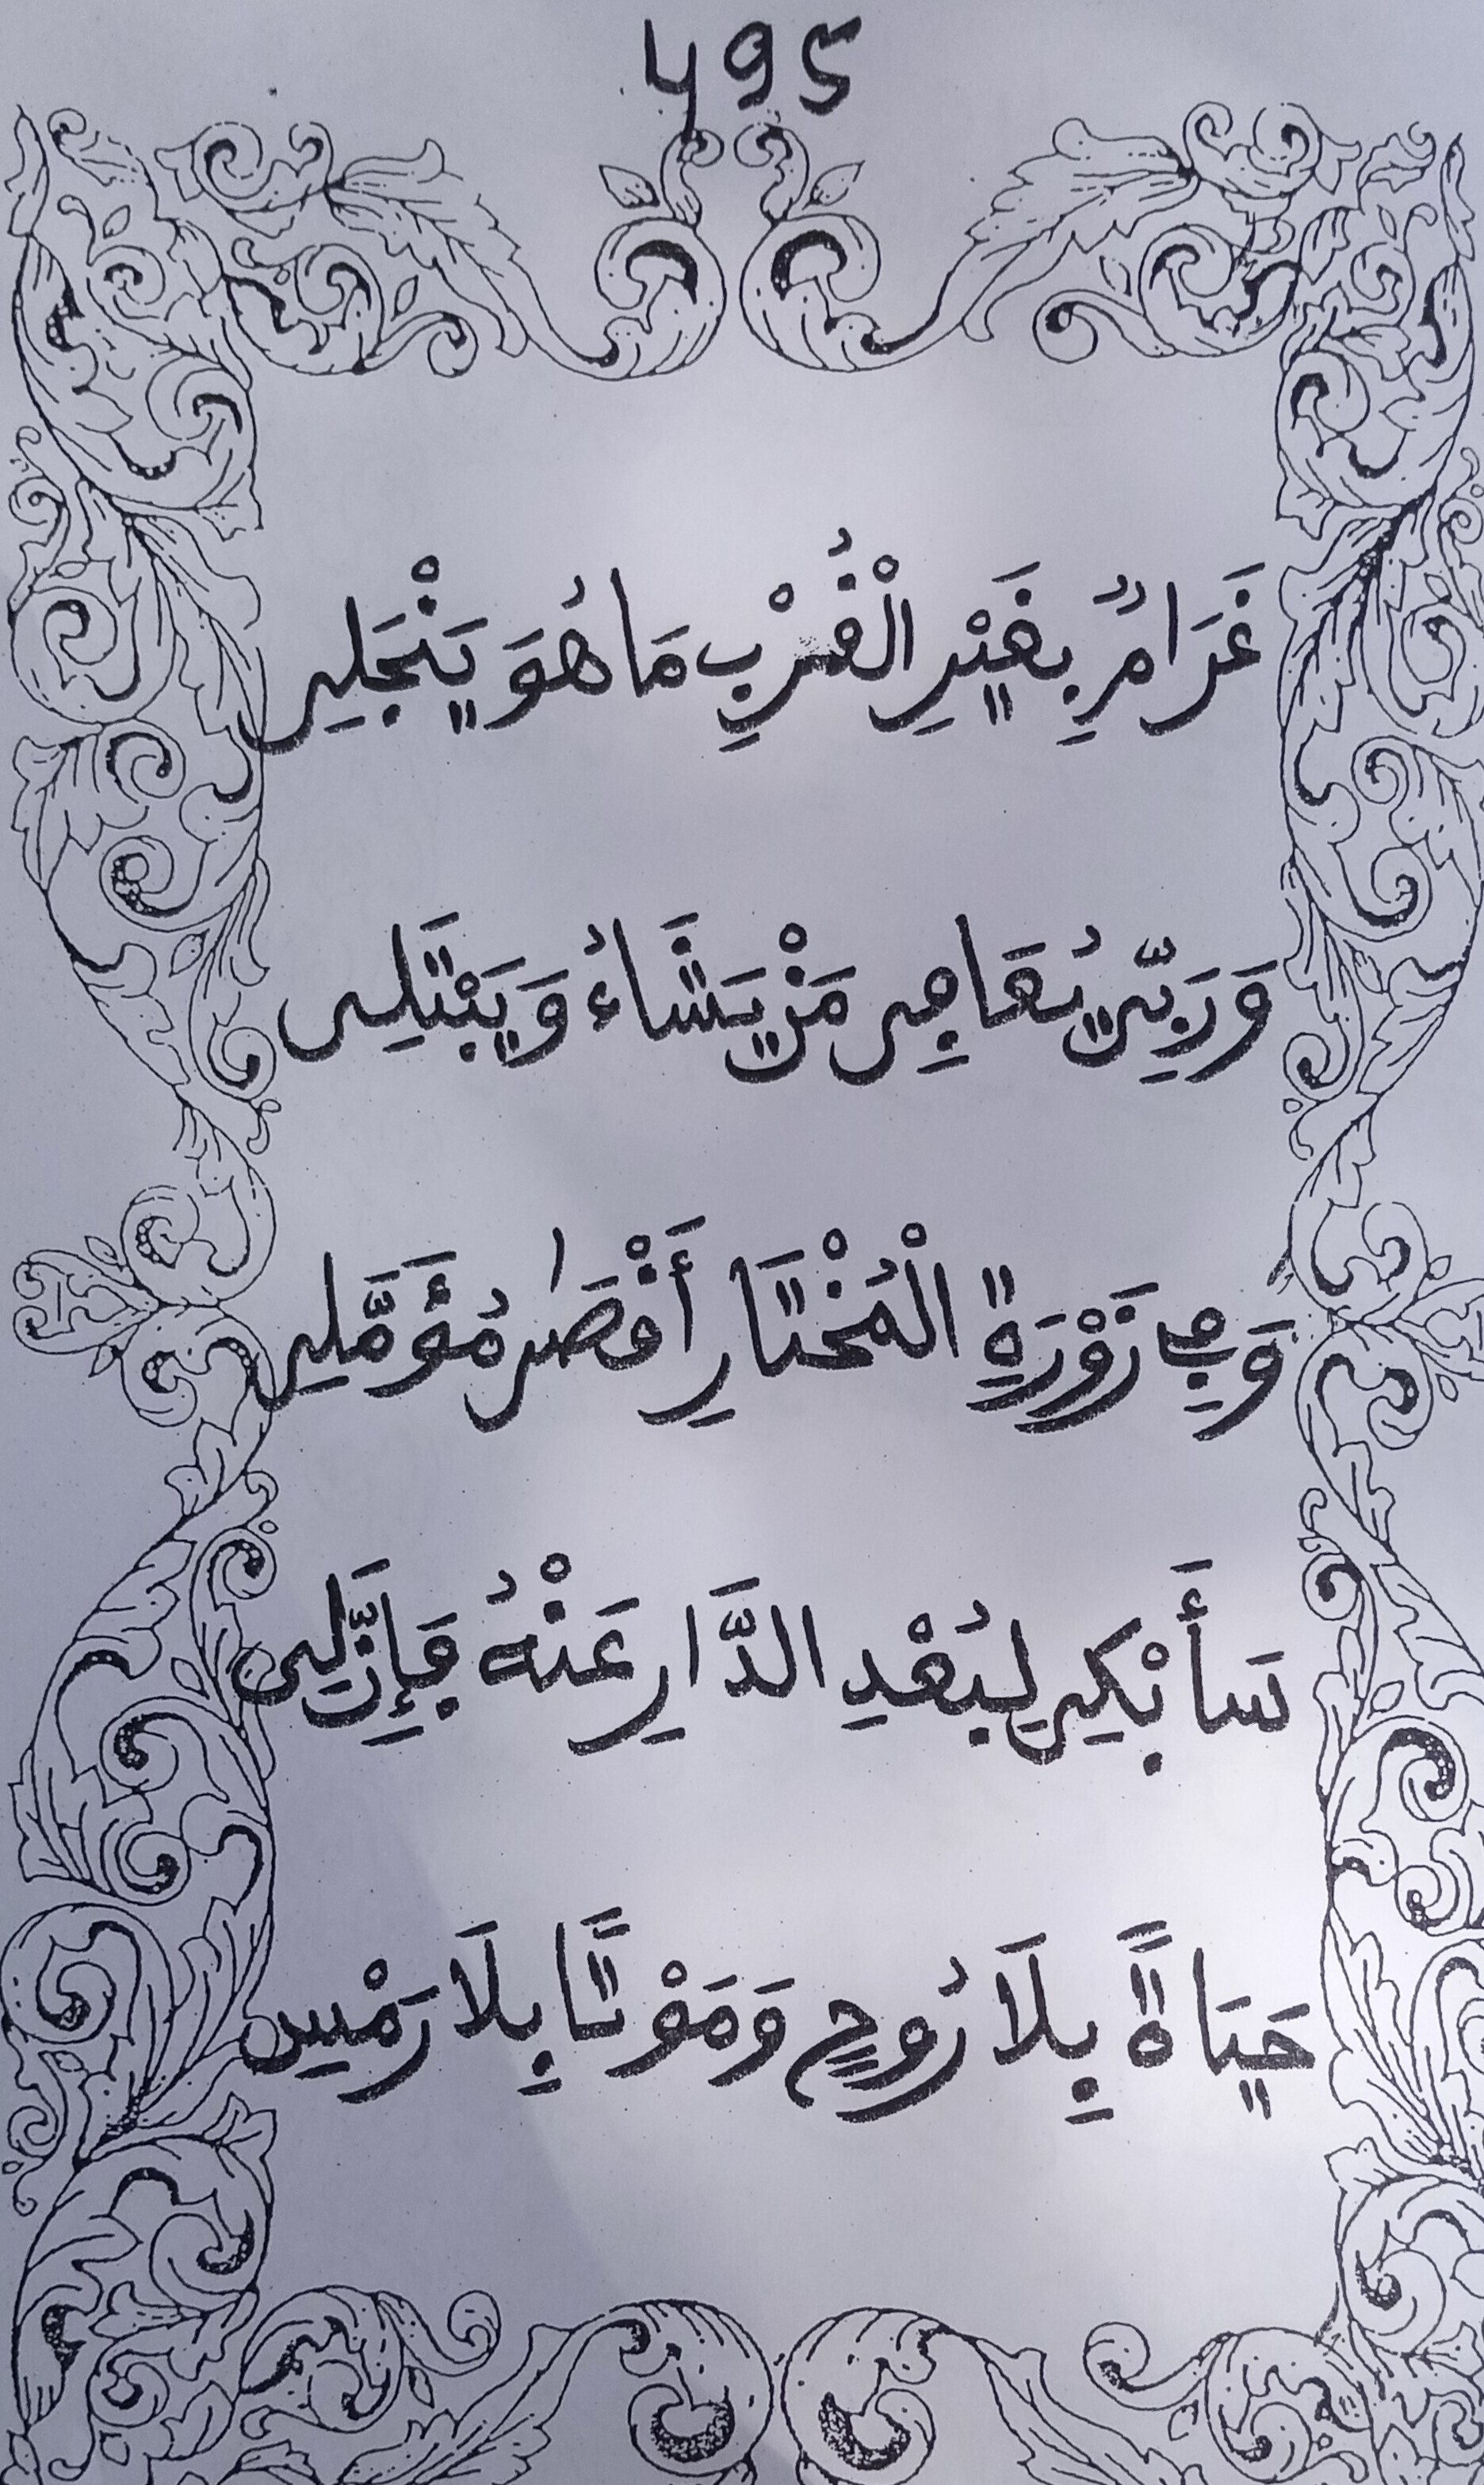 495
غَرَامٌ بِغَيْرِ الْقُرْبِ مَا هُوَ يَنْجَلِي
وَرَبِّي يُعَافِي مَنْ يَشَاءُ وَيَبْتَلِي
وَفِي زَوْرَةِ الْمُخْتَارِ أَقْصَى مُؤَمَّلِي
سَأَبْكِي لِبُعْدِ الدَّارِ عَنْهُ فَإِنَّ لِي
حَيَاةً بِلَا رُوحٍ وَمَوْتًا بِلَا رَمْسِ